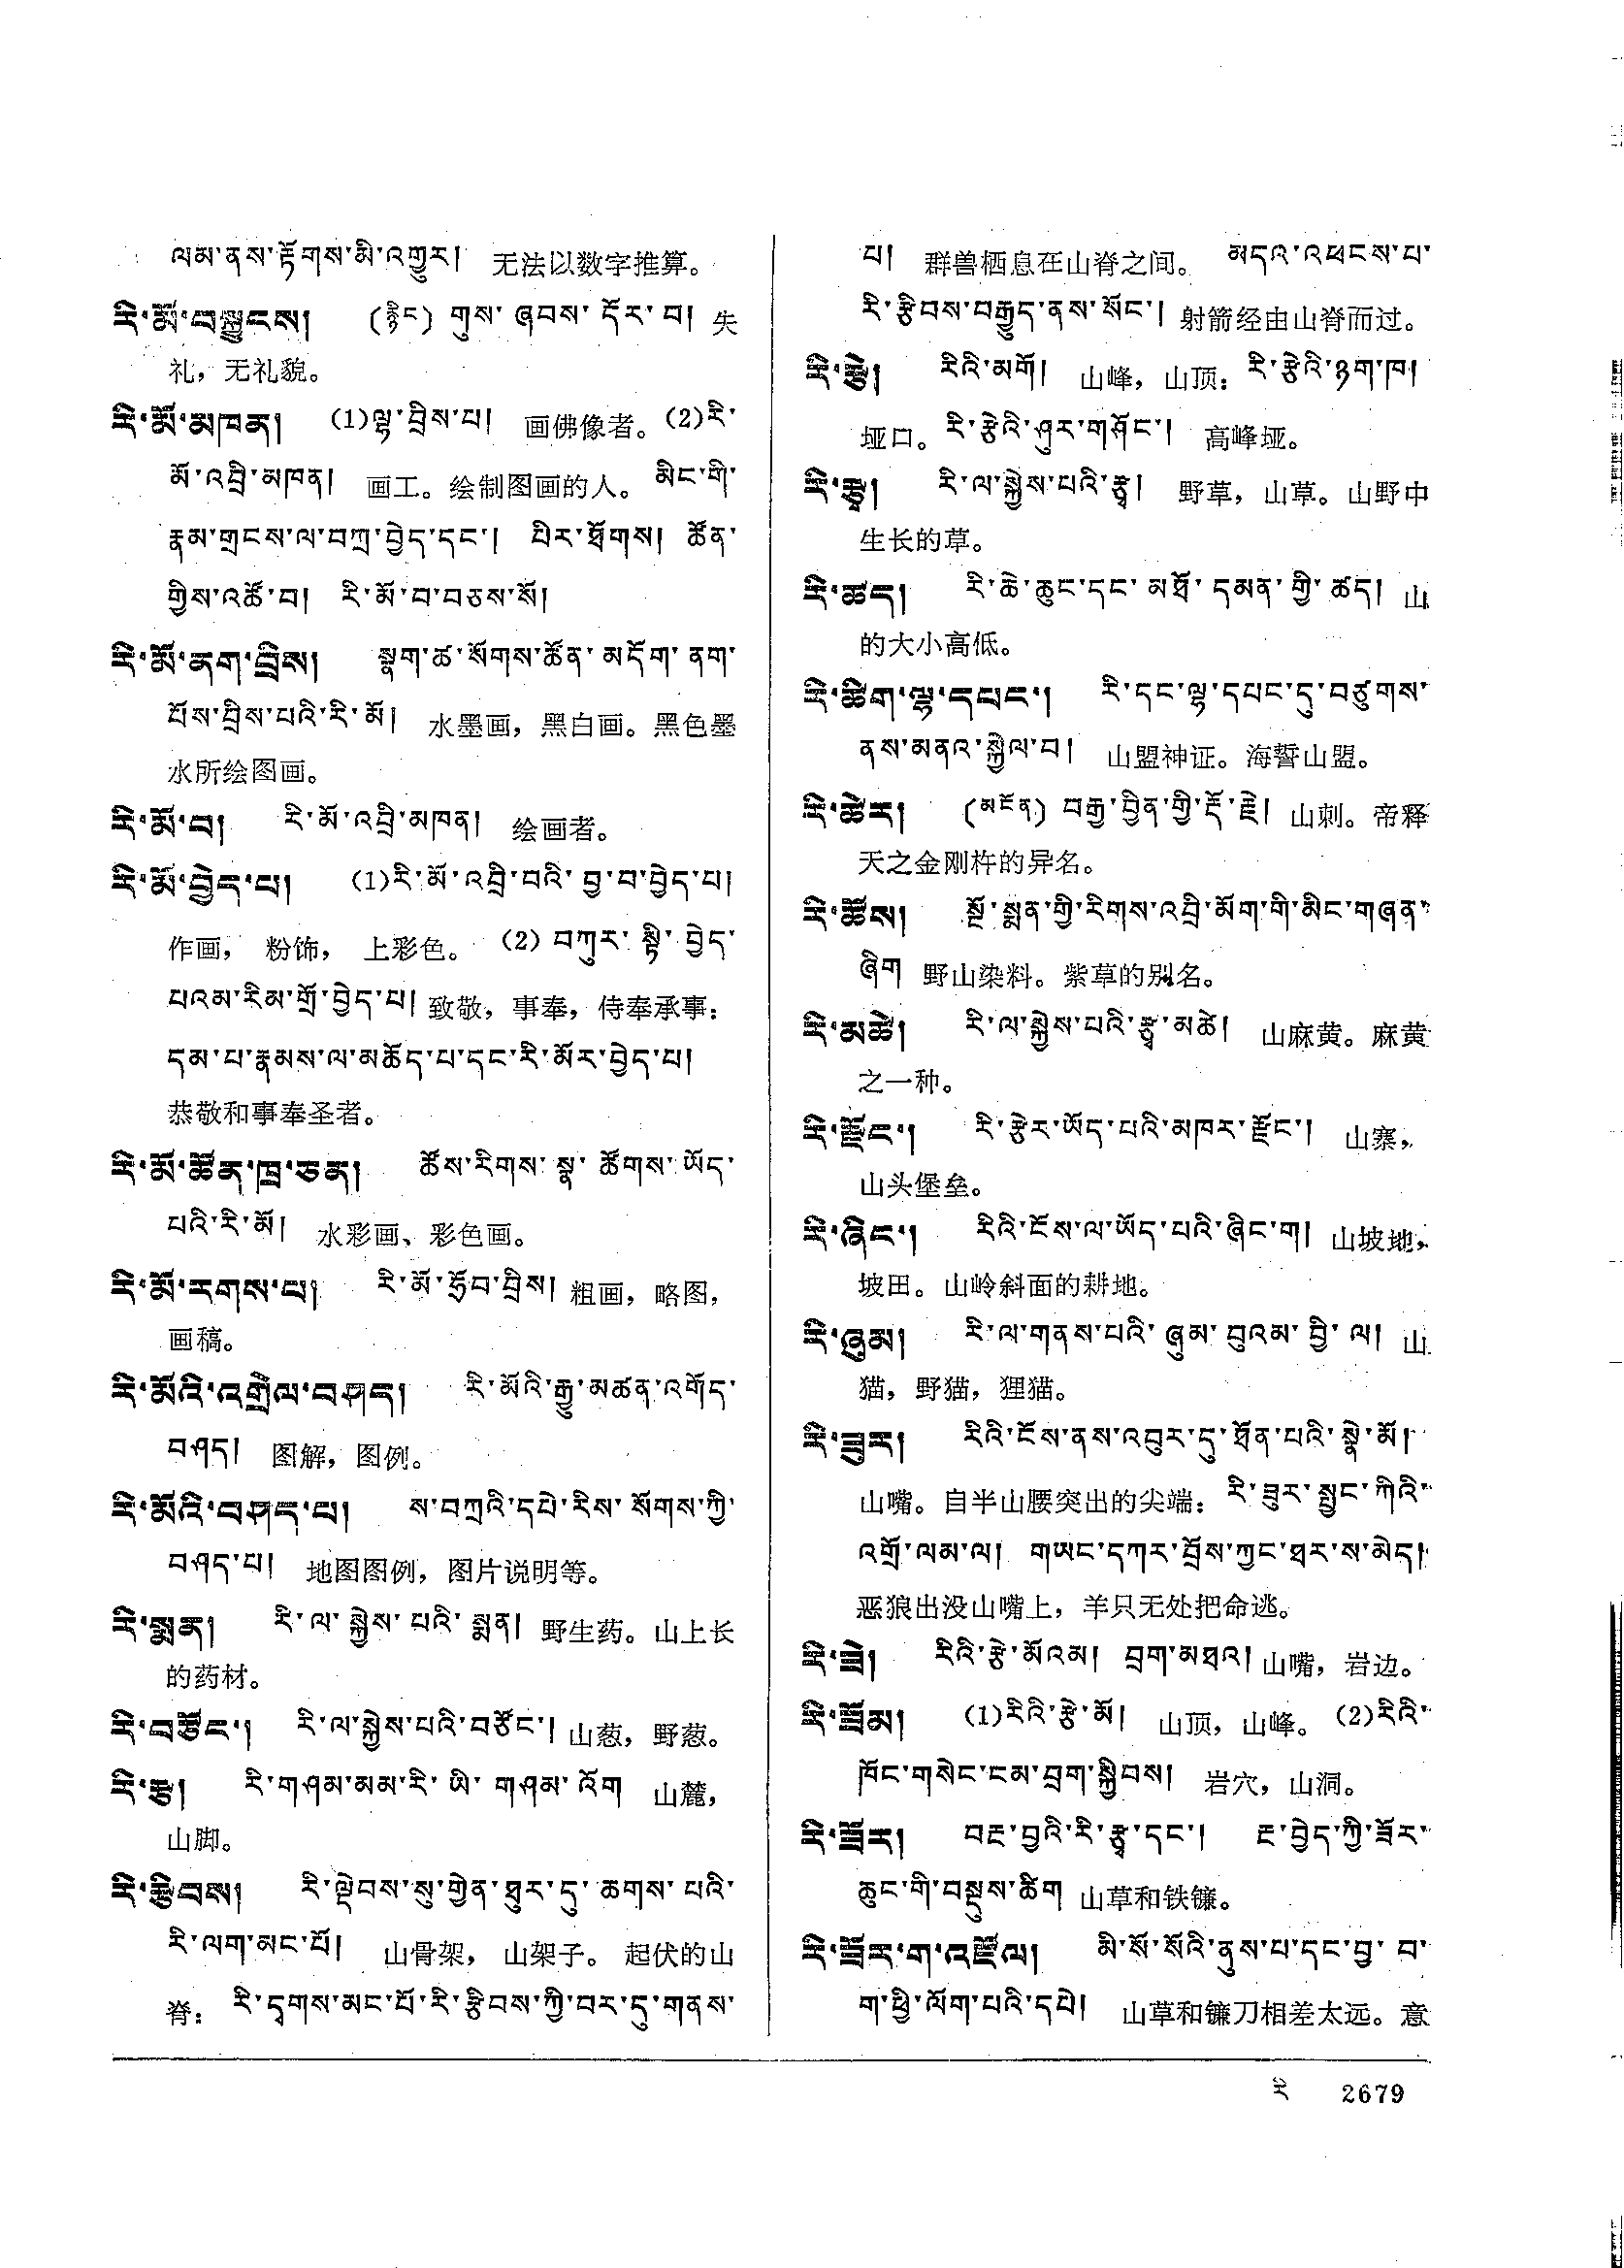 ལམ་ནས་རྟོགས་མི་འགྱུར། 无法以数字推算。
རི་མོ་བསྐྱུངས། (རྙིང) གུས་ ཞབས་ དོར་ བ། 失
礼，无礼貌。
རི་མོ་མཁན། (1)ལྷ་བྲིས་པ། 画佛像者。(2)རི་
མོ་འབྲི་མཁན། 画工。绘制图画的人。 མིང་གི་
རྣམ་གྲངས་ལ་བཀྲ་བྱེད་དང་། པིར་ཐོགས། ཚོན་
གྱིས་འཚོ་བ། རི་མོ་བ་བཅས་སོ།
རི་མོ་ནག་བྲིས། སྣག་ཚ་སོགས་ཚོན་ མདོག་ ནག་
པོས་བྲིས་པའི་རི་མོ། 水墨画，黑白画。黑色墨
水所绘图画。
རི་མོ་བ། རི་མོ་འབྲི་མཁན། 绘画者。
རི་མོ་བྱེད་པ། (1)རི་མོ་འབྲི་བའི་ བྱ་བ་བྱེད་པ།
作画， 粉饰， 上彩色。 (2) བཀུར་ སྟི་ བྱེད་
པའམ་རིམ་གྲོ་བྱེད་པ། 致敬，事奉，侍奉承事：
དམ་པ་རྣམས་ལ་མཆོད་པ་དང་རི་མོར་བྱེད་པ།
恭敬和事奉圣者。
རི་མོ་ཚོན་ཁྲ་ཅན། ཚོས་རིགས་ སྣ་ ཚོགས་ ཡོད་
པའི་རི་མོ། 水彩画、彩色画。
རི་མོ་རགས་པ། རི་མོ་ཧྲོབ་བྲིས། 粗画，略图，
画稿。
རི་མོའི་འགྲེལ་བཤད། རི་མོའི་རྒྱུ་མཚན་འགོད་
བཤད། 图解，图例。
རི་མོའི་བཤད་པ། ས་བཀྲའི་དཔེ་རིས་ སོགས་ཀྱི་
བཤད་པ། 地图图例，图片说明等。
རི་སྨན། རི་ལ་ སྐྱེས་ པའི་ སྨན། 野生药。山上长
的药材。
རི་བཙོང་། རི་ལ་སྐྱེས་པའི་བཙོང་། 山葱，野葱。
རི་རྩ། རི་གཤམ་མམ་རི་ ཡི་ གཤམ་ འོག 山麓，
山脚。
རི་རྩིབས། རི་ལྡེབས་སུ་གྱེན་ཐུར་དུ་ ཆགས་ པའི་
རི་ལག་མང་པོ། 山骨架， 山架子。 起伏的山
脊： རི་དྭགས་མང་པོ་རི་རྩིབས་ཀྱི་བར་དུ་གནས་
པ། 群兽栖息在山脊之间。 མདའ་འཕངས་པ་
རི་རྩིབས་བརྒྱུད་ནས་སོང་། 射箭经由山脊而过。
རི་རྩེ། རིའི་མགོ། 山峰，山顶： རི་རྩེའི་ཉག་ཁ།
垭口。 རི་རྩེའི་ཤུར་གཤོང་། 高峰垭。
རི་རྩྭ། རི་ལ་སྐྱེས་པའི་རྩྭ། 野草，山草。山野中
生长的草。
རི་ཚད། རི་ཆེ་ཆུང་དང་ མཐོ་ དམན་ གྱི་ ཚད། 山
的大小高低。
རི་ཚིག་ལྷ་དཔང་། རི་དང་ལྷ་དཔང་དུ་བཙུགས་
ནས་མནའ་སྐྱེལ་བ། 山盟神证。海誓山盟。
རི་ཚེར། (མངོན) བརྒྱ་བྱིན་གྱི་རྡོ་རྗེ། 山刺。帝释
天之金刚杵的异名。
རི་ཚོས། སྔོ་སྨན་གྱི་རིགས་འབྲི་མོག་གི་མིང་གཞན་
ཞིག 野山染料。紫草的别名。
རི་མཚེ། རི་ལ་སྐྱེས་པའི་རྩྭ་མཚེ། 山麻黄。麻黄
之一种。
རི་རྫོང་། རི་རྩེར་ཡོད་པའི་མཁར་རྫོང་། 山寨，
山头堡垒。
རི་ཞིང་། རིའི་ངོས་ལ་ཡོད་པའི་ཞིང་ག། 山坡地，
坡田。山岭斜面的耕地。
རི་ཞུམ། རི་ལ་གནས་པའི་ ཞུམ་ བུའམ་ བྱི་ ལ། 山
猫，野猫，狸猫。
རི་ཟུར། རིའི་ངོས་ནས་འབུར་དུ་ཐོན་པའི་སྣེ་མོ།
山嘴。自半山腰突出的尖端： རི་ཟུར་སྤྱང་ཀིའི་
འགྲོ་ལམ་ལ། གཡང་དཀར་བྲོས་ཀྱང་ཐར་ས་མེད།
恶狼出没山嘴上，羊只无处把命逃。
རི་ཟེ། རིའི་རྩེ་མོའམ། བྲག་མཐའ། 山嘴，岩边。
རི་ཟོམ། (1)རིའི་རྩེ་མོ། 山顶，山峰。 (2)རིའི་
ཁོང་གསེང་ངམ་བྲག་སྐྱིབས། 岩穴，山洞。
རི་ཟོར། བརྔ་བྱའི་རི་རྩྭ་དང་། རྔ་བྱེད་ཀྱི་ཟོར་
ཆུང་གི་བསྡུས་ཚིག 山草和铁镰。
རི་ཟོར་ག་འཛོལ། མི་སོ་སོའི་ནུས་པ་དང་བྱ་ བ་
ག་ཕྱི་ལོག་པའི་དཔེ། 山草和镰刀相差太远。意
རི 2679